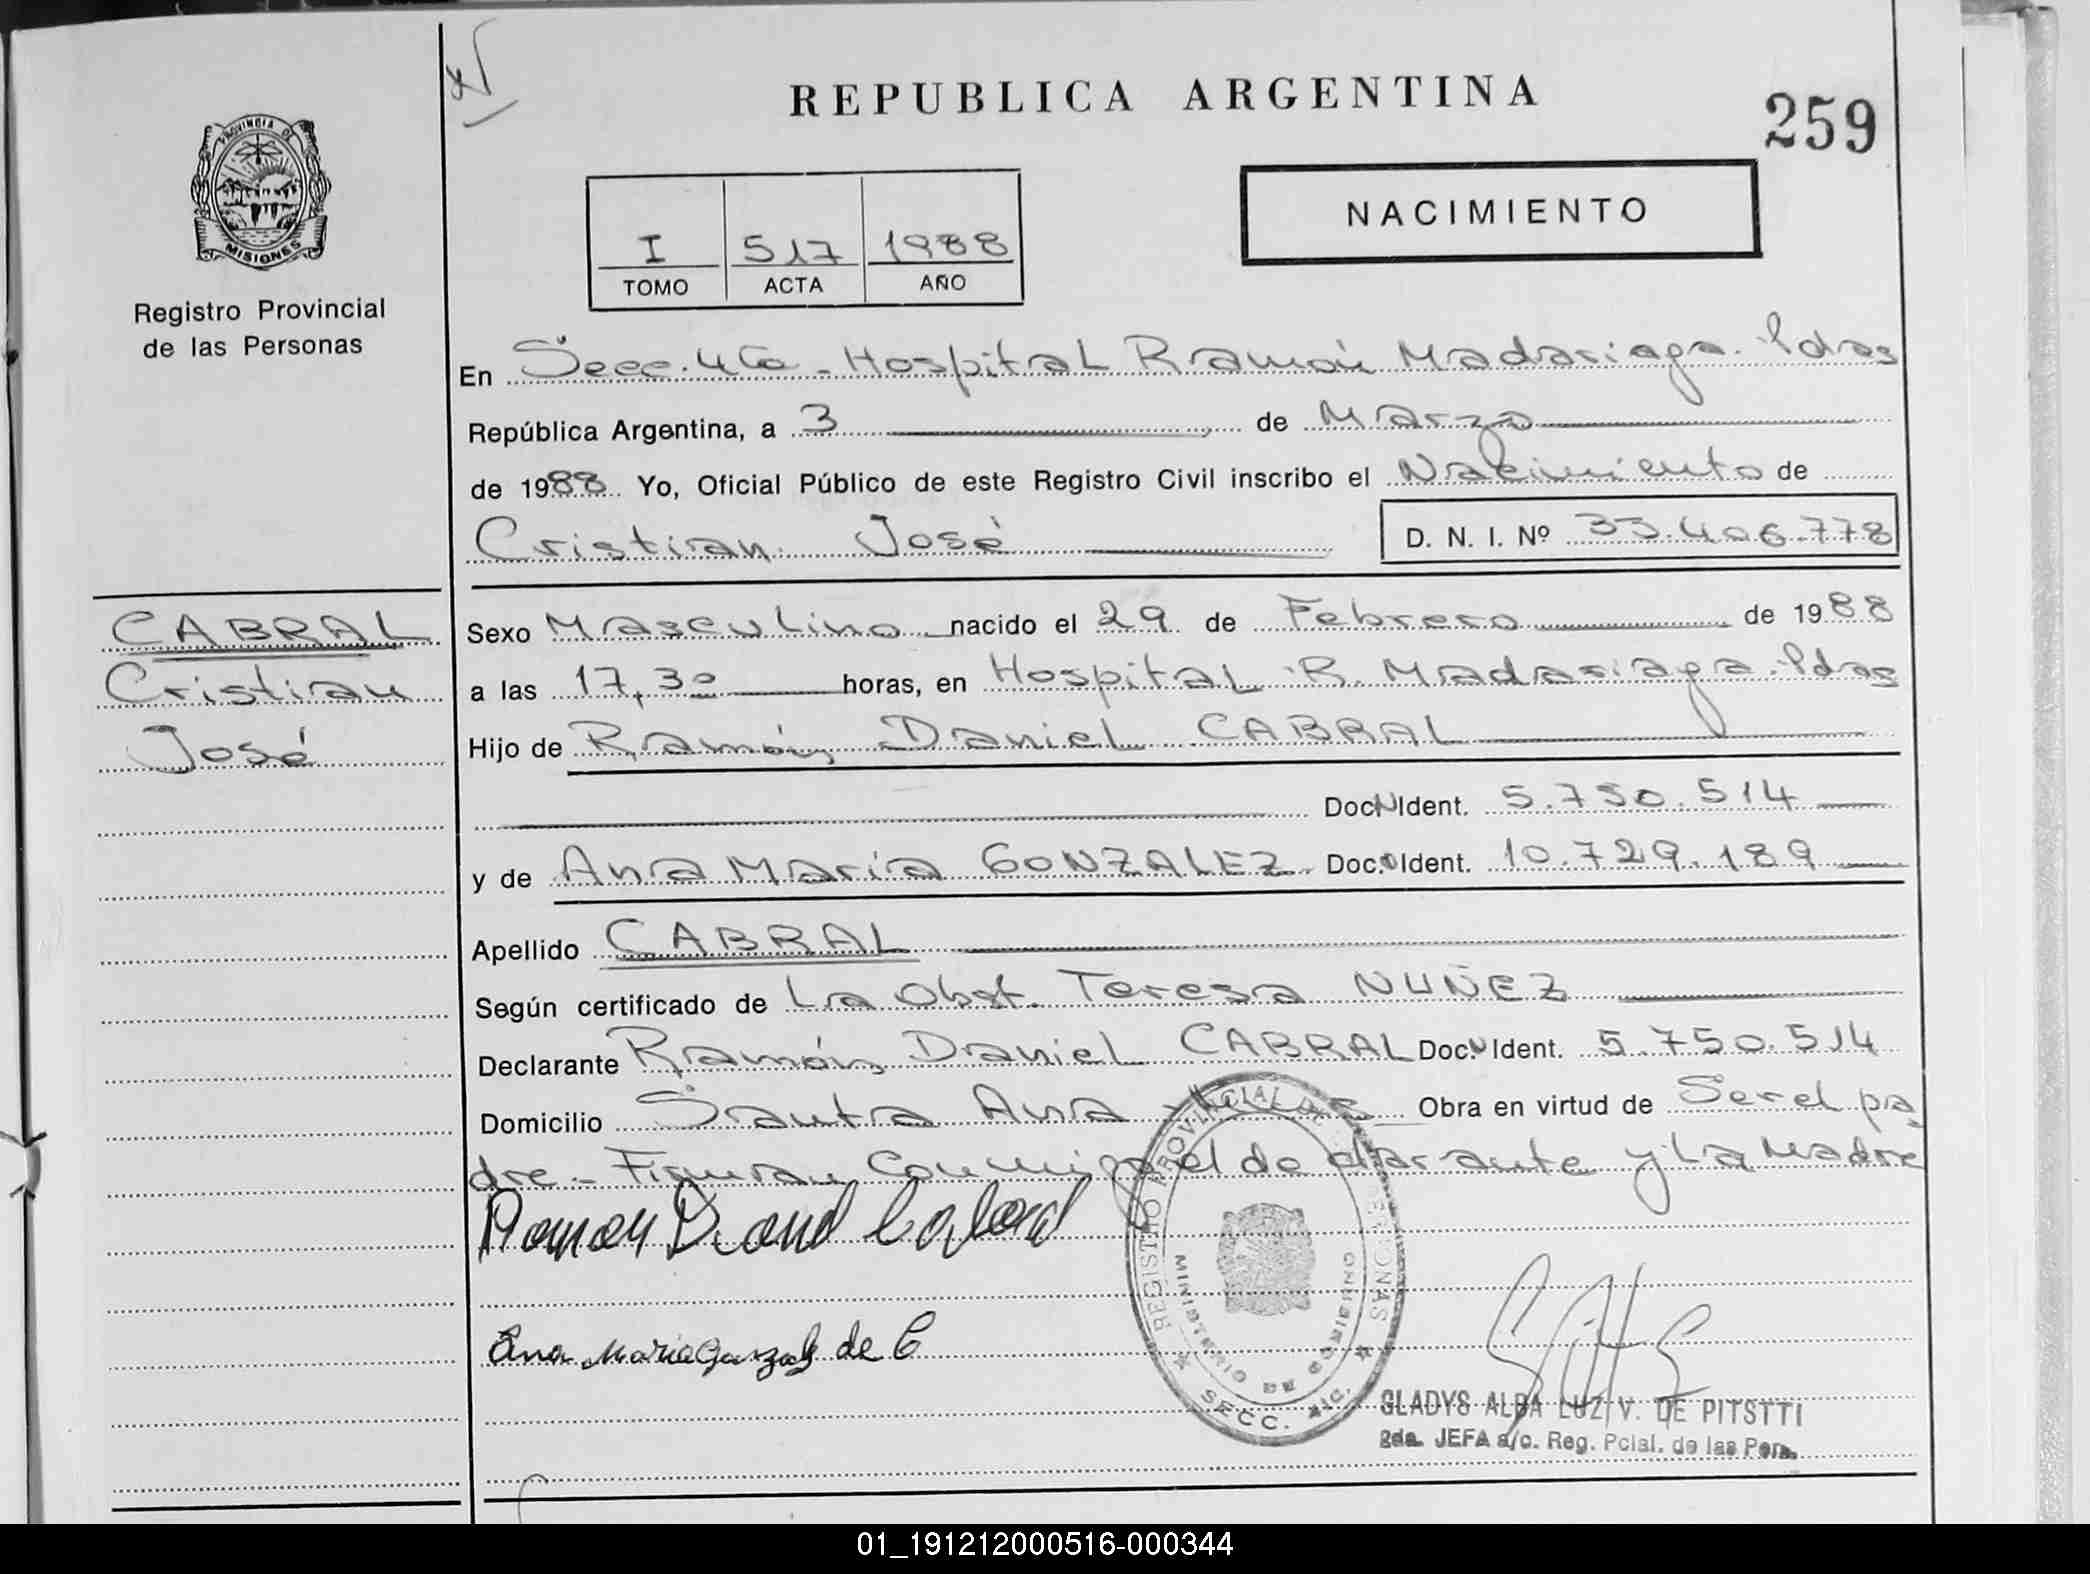 REPUBLICA ARGENTINA
259
PROVINCIA DE
MISIONES
Registro Provincial
de las Personas
NACIMIENTO
I 517 1988
TOMO ACTA AÑO
En Secc. 4ta - Hospital Ramón Madariaga. Pdas
República Argentina, a 3 de Marzo
de 1988 Yo, Oficial Público de este Registro Civil inscribo el Nacimiento de
Cristian José D. N. I. Nº 33.406.778
CABRAL
Cristian
José
Sexo Masculino nacido el 29 de Febrero de 1988
a las 17,30 horas, en Hospital R. Madariaga. Pdas
Hijo de Ramón Daniel CABRAL
Doc. Ident. 5.750.514
y de Ana María GONZALEZ Doc. Ident. 10.729.189
Apellido CABRAL
Según certificado de La Obst. Teresa NUÑEZ
Declarante Ramón Daniel CABRAL Doc. Ident. 5.750.514
Domicilio Santa Ana Obra en virtud de Ser el pa
dre - Firman Conmigo el declarante y La Madre
Ramon Daniel Cabral
Ana Maria Gonzalez de C
REGISTRO PROVINCIAL DE LAS PERSONAS
MINISTERIO DE GOBIERNO
SECC.
GLADYS ALBA LUZ V. DE PITSTTI
2da. JEFA a/c. Reg. Pcial. de las Pers.
01_191212000516-000344